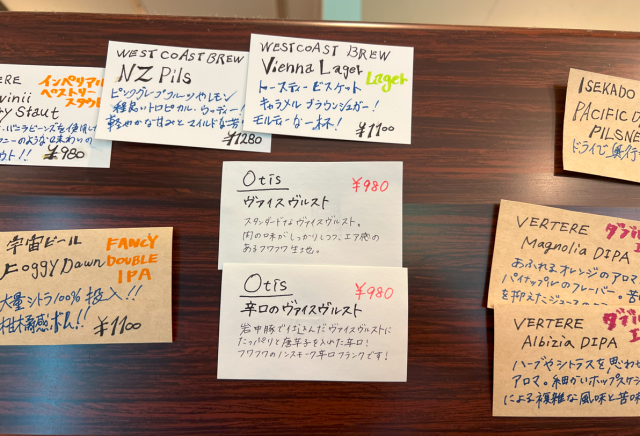 WEST COAST BREW
NZ Pils
ピンクグレープフルーツやレモン
軽やかな甘みとマイルドな苦
¥1280
WESTCOAST BREW
Vienna Lager
Lager
トースティービスケット
キャラメル ブラウンシュガー!
モルティーな一杯!
¥1100
ERE
インペリアル
ペストリー
スタウト
winii
y Staut
・バニラビーンズを使用し
ニーのような味わいの
ウト!!
¥980
ISEKADO
PACIFIC D
PILSNE
ドライで、奥行
Otis
¥980
ヴァイスヴルスト
スタンダードなヴァイスヴルスト。
肉の味がしっかりしつつ、エア感の
あるフワフワ生地。
Otis
¥980
辛口のヴァイスヴルスト
岩中豚で仕込んだヴァイスヴルストに
たっぷりと唐辛子を入れた辛口!
フワフワのノンスモーク辛口フランクです!
宇宙ビール
Foggy Dawn
FANCY
DOUBLE
IPA
大量シトラ100%投入!!
柑橘感ボム!!
¥1100
VERTERE
Magnolia DIPA
あふれるオレンジのアロマ
パイナップルのフレーバー。苦
を抑えたジュースの
VERTERE
Albizia DIPA
ハーブやシトラスを思わせ
アロマ。細かいホップスケジ
による複雑な風味と苦味